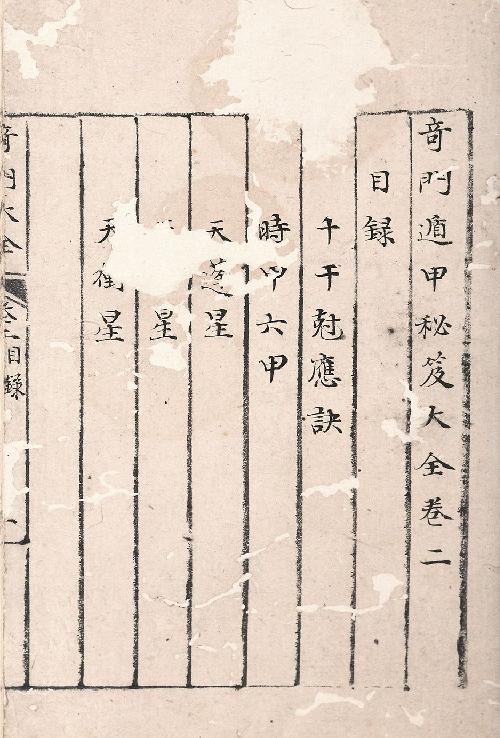 竒門遁甲秘笈大全卷二
目録
十干尅應訣
時加六甲
天蓬星
星
天衝星
竒門大全
卷二目録